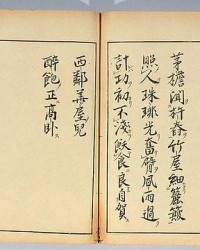 茅檐閑杵舂竹屋細籭簸
照人珠琲光奮臂風雨過
計功初不淺飯食良自賀
西鄰華屋兒
醉飽正高卧